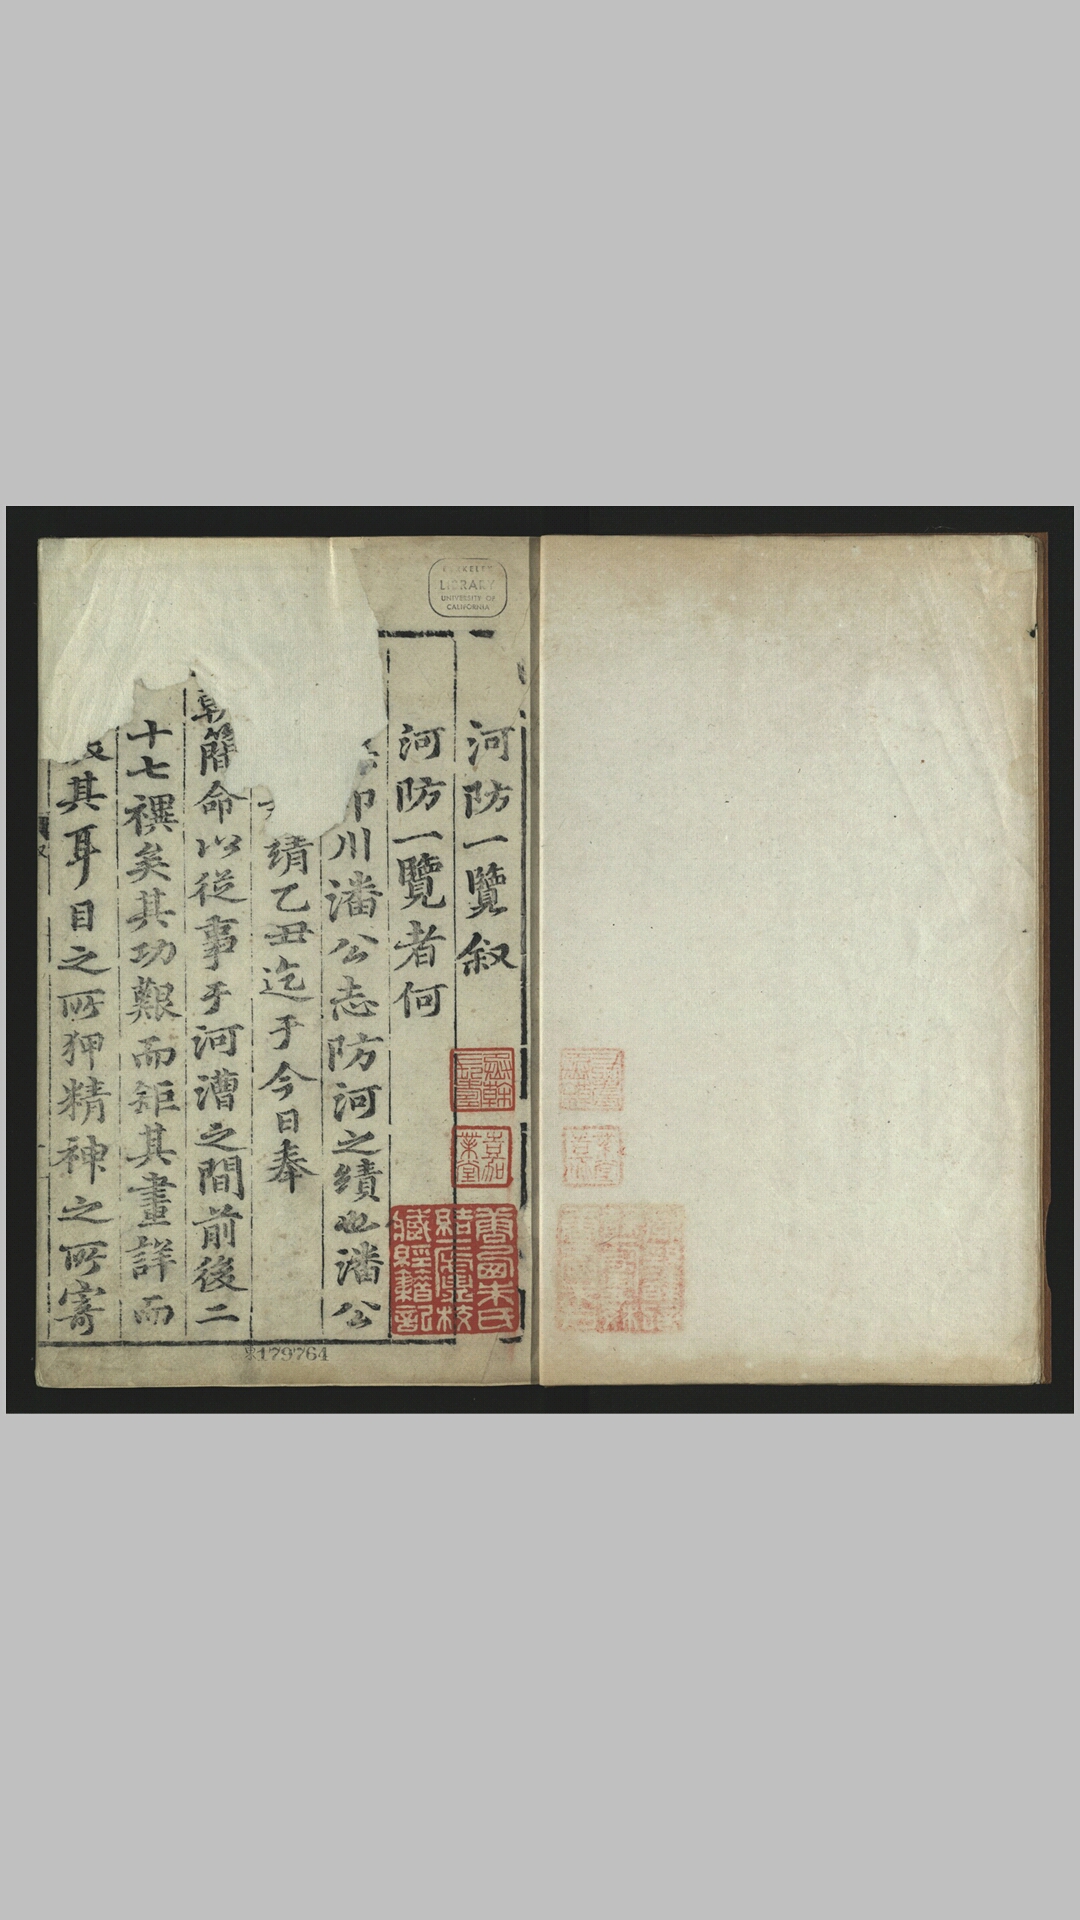 河防一覽叙
河防一覽者何
印川潘公志防河之績也潘公
靖乙丑迄于今日奉
簡命以從事于河漕之間前後二
十七禩矣其功艱而鉅其畫詳而
其耳目之所狎精神之所寄
嘉業堂
BERKELEY
LIBRARY
UNIVERSITY OF
CALIFORNIA
179764